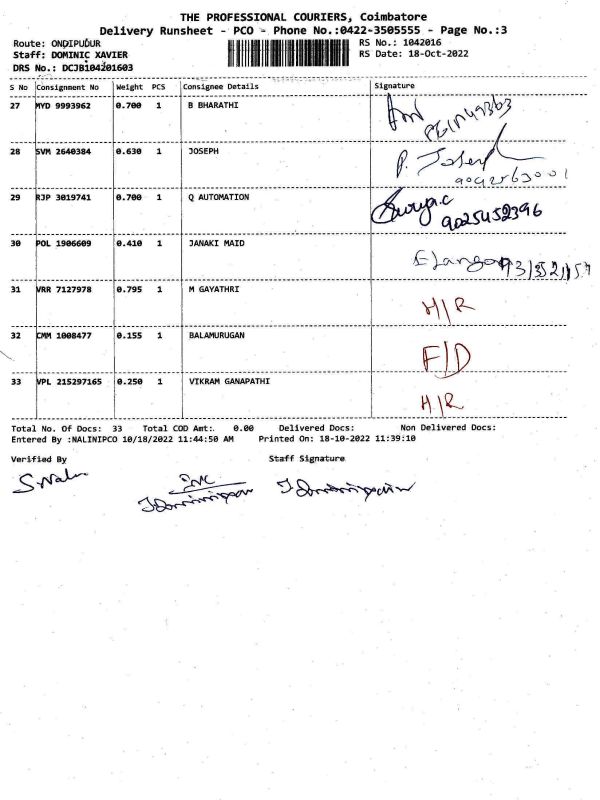 THE PROFESSIONAL COURIERS, Coimbatore
Delivery Runsheet - PCO - Phone No.:0422-3505555 - Page No.:3
Route: ONDIPUDUR RS No.: 1042016
Staff: DOMINIC XAVIER RS Date: 18-Oct-2022
DRS No.: DCJB104201603
S No Consignment No Weight PCS Consignee Details Signature
27 MYD 9993962 0.700 1 B BHARATHI
28 SVM 2640384 0.630 1 JOSEPH P. Joseph
29 RJP 3019741 0.700 1 Q AUTOMATION Surya.c
9025452396
30 POL 1906609 0.410 1 JANAKI MAID Elangon
31 VRR 7127978 0.795 1 M GAYATHRI H/R
32 CMM 1008477 0.155 1 BALAMURUGAN F/D
33 VPL 215297165 0.250 1 VIKRAM GANAPATHI H/R
Total No. Of Docs: 33 Total COD Amt: 0.00 Delivered Docs: Non Delivered Docs:
Entered By :NALINIPCO 10/18/2022 11:44:50 AM Printed On: 18-10-2022 11:39:10
Verified By Staff Signature